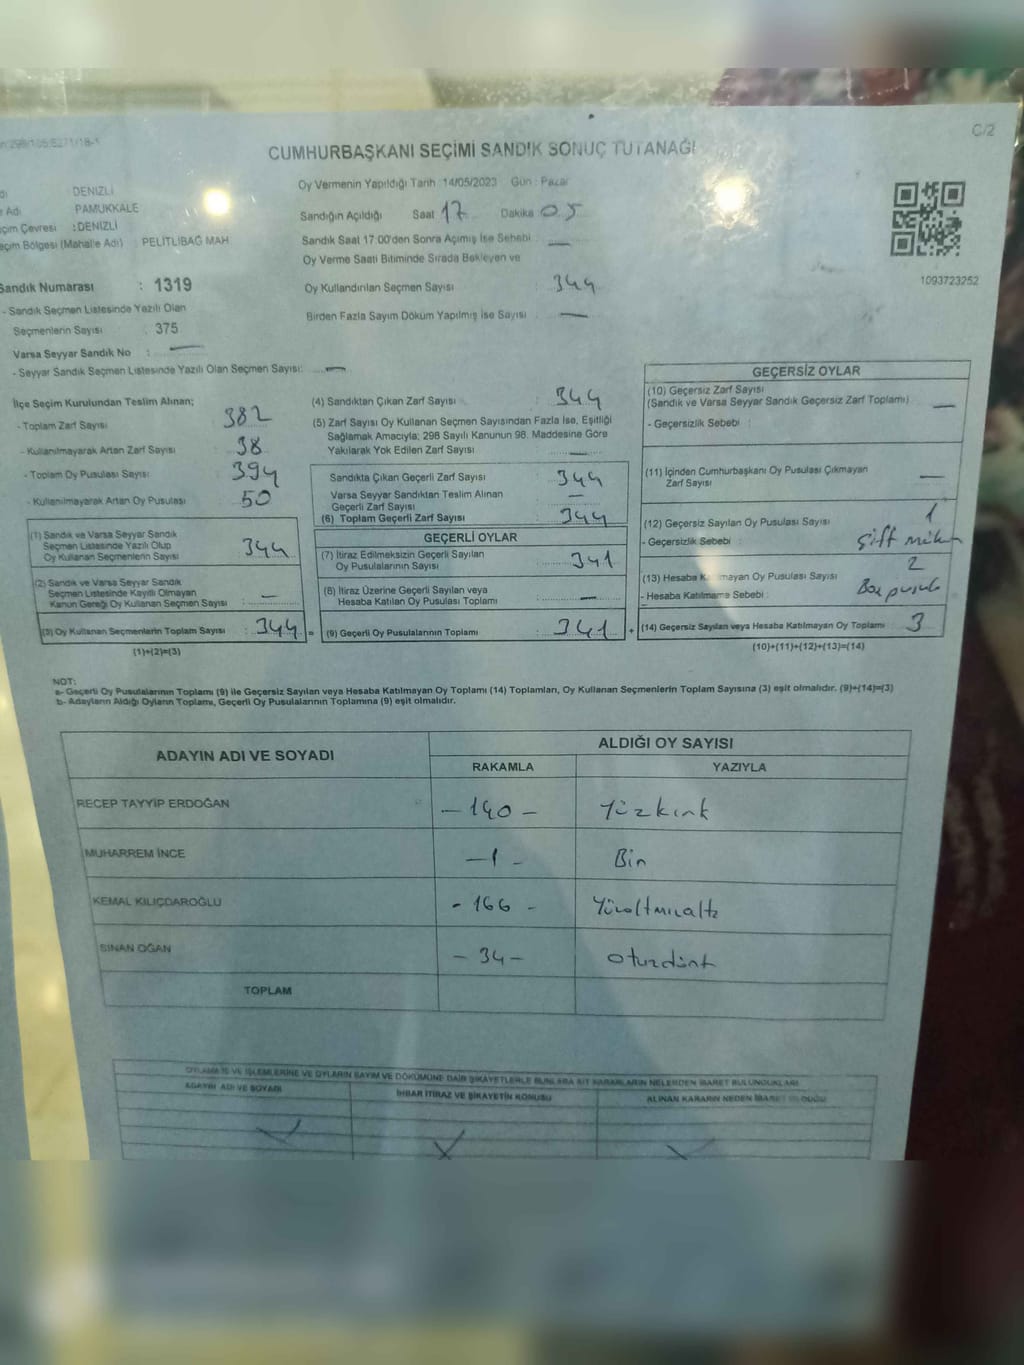 C/2
CUMHURBAŞKANI SEÇİMİ SANDIK SONUÇ TUTANAĞI
DENİZLİ
Adı : PAMUKKALE
çim Çevresi : DENİZLİ
eçim Bölgesi (Mahalle Adı) : PELİTLİBAĞ MAH.
Sandık Numarası : 1319
- Sandık Seçmen Listesinde Yazılı Olan
Seçmenlerin Sayısı : 375
Varsa Seyyar Sandık No : —
- Seyyar Sandık Seçmen Listesinde Yazılı Olan Seçmen Sayısı: —
Oy Vermenin Yapıldığı Tarih :14/05/2023 Gün : Pazar
Sandığın Açıldığı Saat 17 Dakika 05
Sandık Saat 17:00'den Sonra Açılmış İse Sebebi : —
Oy Verme Saati Bitiminde Sırada Bekleyen ve
Oy Kullandırılan Seçmen Sayısı : 344
Birden Fazla Sayım Döküm Yapılmış İse Sayısı : —
1093723252
İlçe Seçim Kurulundan Teslim Alınan;
- Toplam Zarf Sayısı : 382
- Kullanılmayarak Artan Zarf Sayısı : 38
- Toplam Oy Pusulası Sayısı : 394
- Kullanılmayarak Artan Oy Pusulası : 50
(1) Sandık ve Varsa Seyyar Sandık
Seçmen Listesinde Yazılı Olup
Oy Kullanan Seçmenlerin Sayısı : 344
(2) Sandık ve Varsa Seyyar Sandık
Seçmen Listesinde Kayıtlı Olmayan
Kanun Gereği Oy Kullanan Seçmen Sayısı : —
(3) Oy Kullanan Seçmenlerin Toplam Sayısı : 344 =
(1)+(2)=(3)
(4) Sandıktan Çıkan Zarf Sayısı : 344
(5) Zarf Sayısı Oy Kullanan Seçmen Sayısından Fazla İse, Eşitliği
Sağlamak Amacıyla; 298 Sayılı Kanunun 98. Maddesine Göre
Yakılarak Yok Edilen Zarf Sayısı : —
Sandıkta Çıkan Geçerli Zarf Sayısı : 344
Varsa Seyyar Sandıktan Teslim Alınan
Geçerli Zarf Sayısı : —
(6) Toplam Geçerli Zarf Sayısı : 344
GEÇERLİ OYLAR
(7) İtiraz Edilmeksizin Geçerli Sayılan
Oy Pusulalarının Sayısı : 341
(8) İtiraz Üzerine Geçerli Sayılan veya
Hesaba Katılan Oy Pusulası Toplamı : —
(9) Geçerli Oy Pusulalarının Toplamı : 341 +
GEÇERSİZ OYLAR
(10) Geçersiz Zarf Sayısı
(Sandık ve Varsa Seyyar Sandık Geçersiz Zarf Toplamı) —
- Geçersizlik Sebebi :
(11) İçinden Cumhurbaşkanı Oy Pusulası Çıkmayan
Zarf Sayısı —
(12) Geçersiz Sayılan Oy Pusulası Sayısı 1
- Geçersizlik Sebebi : Çift mühür
(13) Hesaba Katılmayan Oy Pusulası Sayısı 2
- Hesaba Katılmama Sebebi : Boş pusula
(14) Geçersiz Sayılan veya Hesaba Katılmayan Oy Toplamı : 3
(10)+(11)+(12)+(13)=(14)
NOT:
a- Geçerli Oy Pusulalarının Toplamı (9) ile Geçersiz Sayılan veya Hesaba Katılmayan Oy Toplamı (14) Toplamları, Oy Kullanan Seçmenlerin Toplam Sayısına (3) eşit olmalıdır. (9)+(14)=(3)
b- Adayların Aldığı Oyların Toplamı, Geçerli Oy Pusulalarının Toplamına (9) eşit olmalıdır.
ADAYIN ADI VE SOYADI
ALDIĞI OY SAYISI
RAKAMLA YAZIYLA
RECEP TAYYİP ERDOĞAN -140- Yüzkırk
MUHARREM İNCE -1- Bir
KEMAL KILIÇDAROĞLU -166- Yüzaltmışaltı
SİNAN OĞAN -34- Otuzdört
TOPLAM
OYLAMA İŞ VE İŞLEMLERİNE VE OYLARIN SAYIM VE DÖKÜMÜNE DAİR ŞİKAYETLERLE BUNLARA AİT KARARLARIN NELERDEN İBARET BULUNDUKLARI
ADAYIN ADI VE SOYADI İHBAR İTİRAZ VE ŞİKAYETİN KONUSU ALINAN KARARIN NEDEN İBARET OLDUĞU